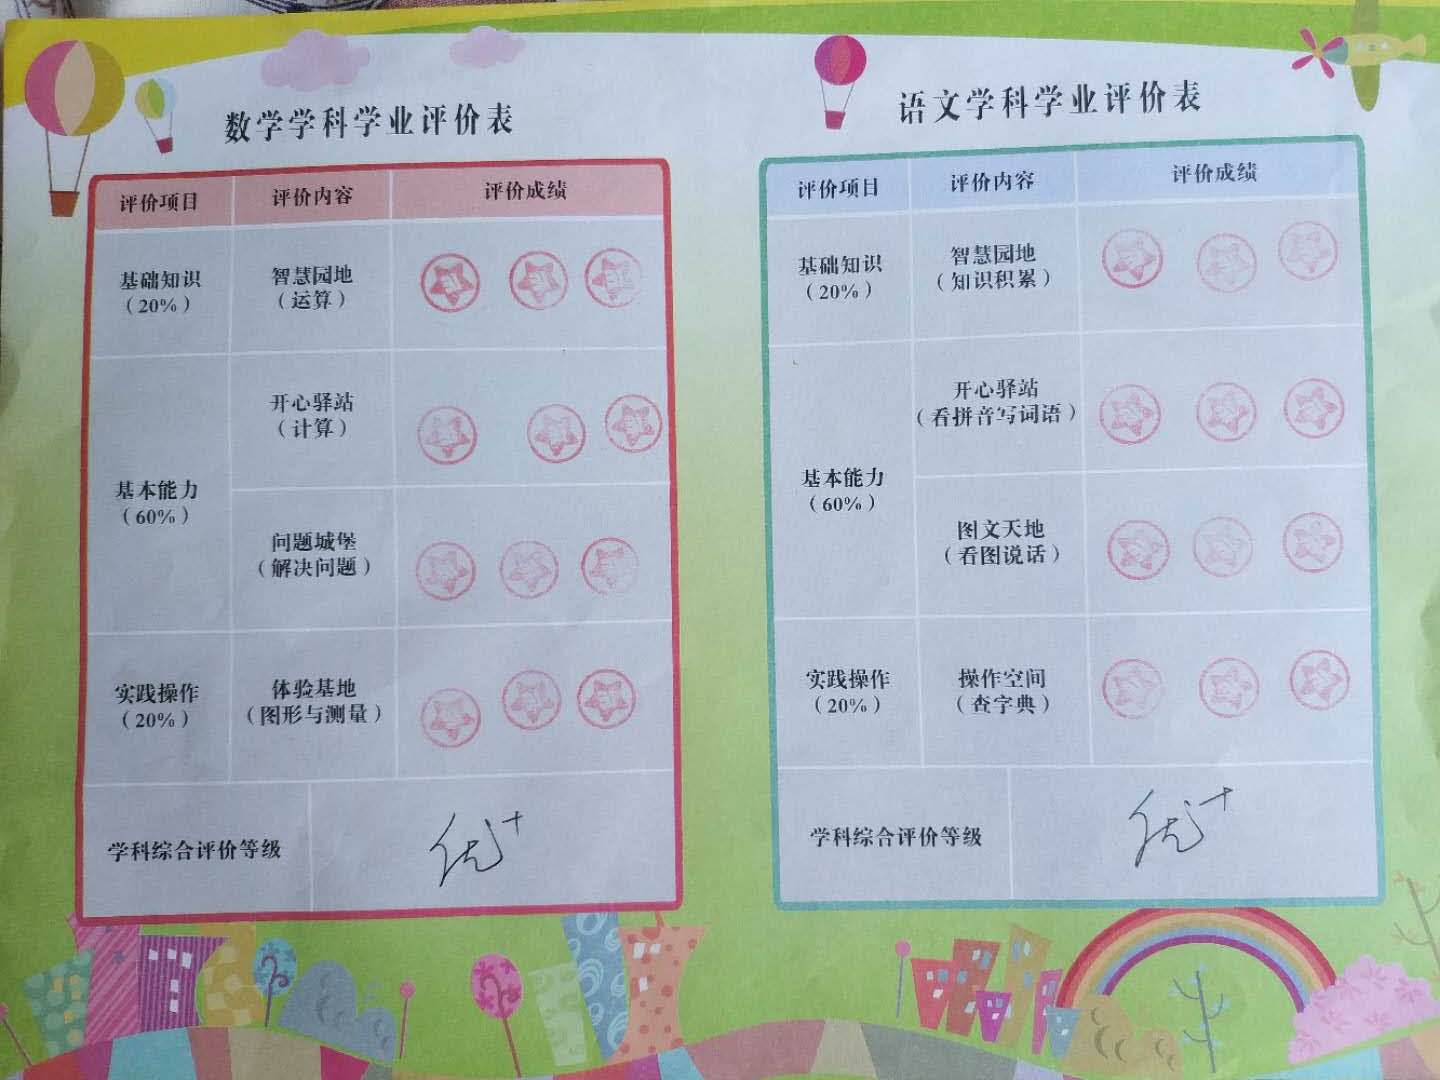 数学学科学业评价表
评价项目 评价内容 评价成绩
基础知识
（20%）
智慧园地
（运算）
基本能力
（60%）
开心驿站
（计算）
问题城堡
（解决问题）
实践操作
（20%）
体验基地
（图形与测量）
学科综合评价等级 优+
语文学科学业评价表
评价项目 评价内容 评价成绩
基础知识
（20%）
智慧园地
（知识积累）
基本能力
（60%）
开心驿站
（看拼音写词语）
图文天地
（看图说话）
实践操作
（20%）
操作空间
（查字典）
学科综合评价等级 优+